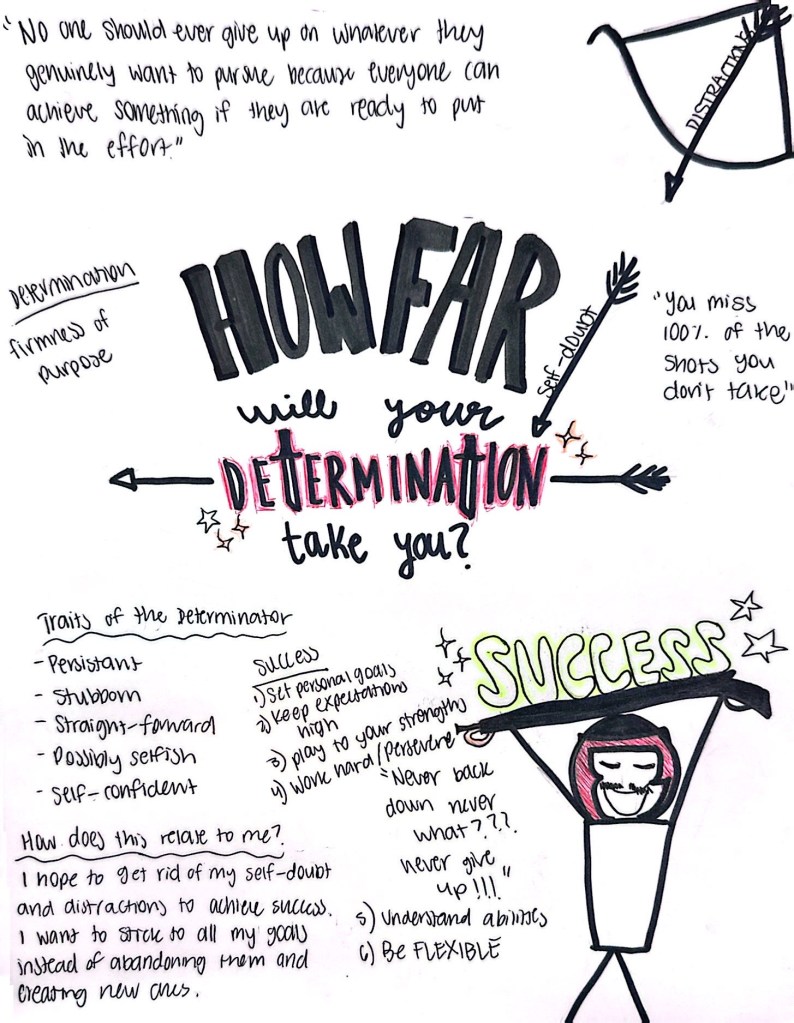 "No one should ever give up on whatever they
genuinely want to pursue because everyone can
achieve something if they are ready to put
in the effort."
DISTRACTIONS
Determination
firmness of
purpose
HOW FAR
will your
DETERMINATION
take you?
Self-doubt
"You miss
100% of the
shots you
don't take"
Traits of the Determinator
- Persistant
- Stubborn
- Straight-forward
- Possibly selfish
- self-confident
Success
1) Set personal goals
2) Keep expectations
high
3) play to your strengths
4) work hard/Persevere
"Never back
down never
what???
never give
up!!!"
5) Understand abilities
6) Be FLEXIBLE
SUCCESS
How does this relate to me?
I hope to get rid of my self-doubt
and distractions to achieve success.
I want to stick to all my goals
instead of abandoning them and
creating new ones.